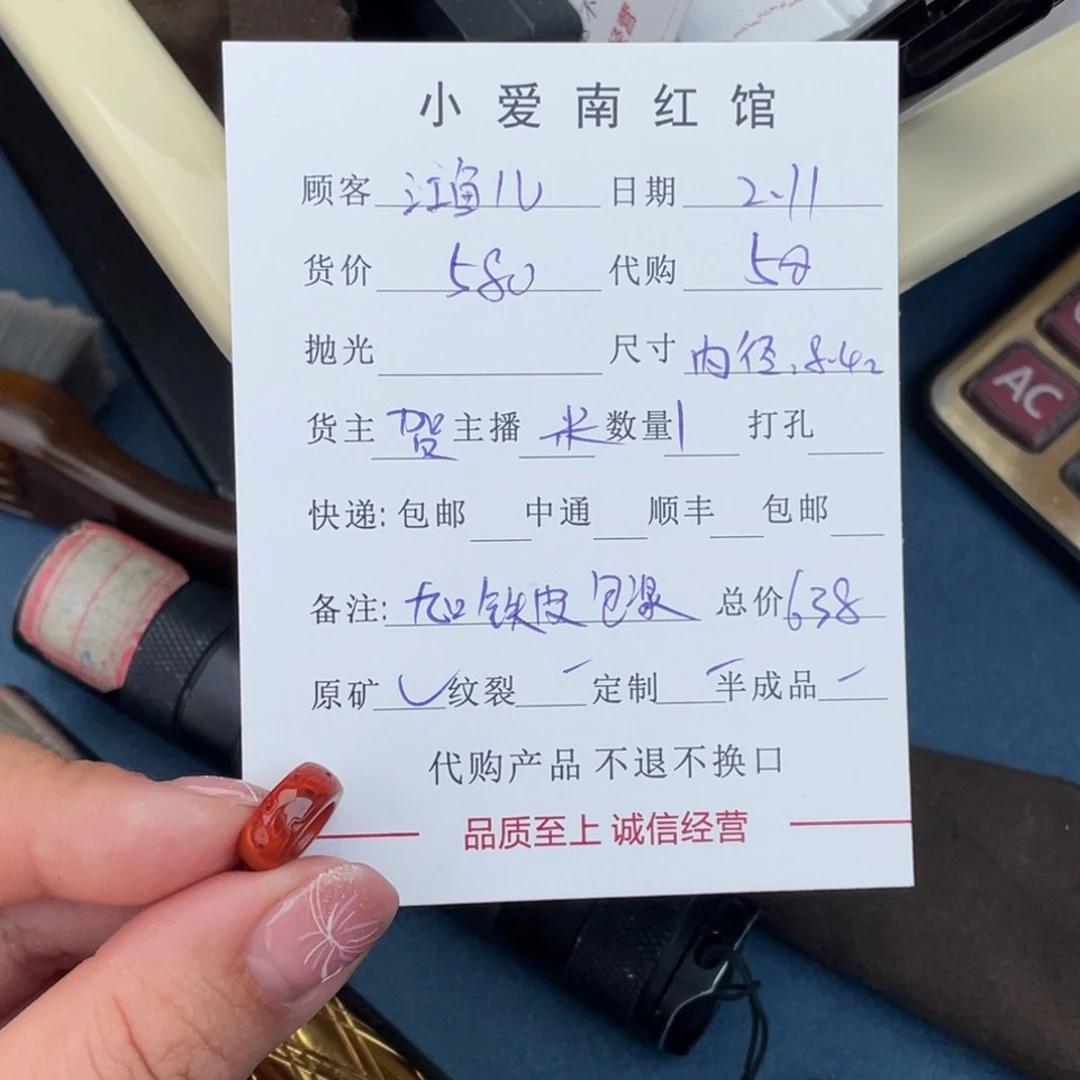 小爱南红馆
顾客 江鱼儿 日期 2.11
货价 580 代购 58
抛光 尺寸 内径.8.42
货主 贺 主播 米 数量 1 打孔
快递: 包邮 中通 顺丰 包邮
备注: 铁皮包浆 总价 638
原矿 纹裂 定制 半成品
代购产品 不退不换口
品质至上 诚信经营
AC